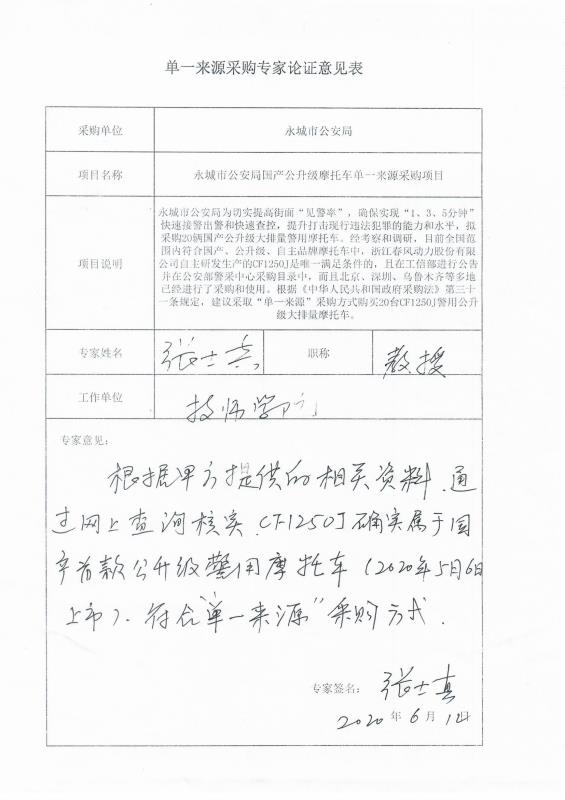 单一来源采购专家论证意见表
采购单位
永城市公安局
项目名称
永城市公安局国产公升级摩托车单一来源采购项目
项目说明
永城市公安局为切实提高街面“见警率”，确保实现“1、3、5分钟”
快速接警出警和快速查控，提升打击现行违法犯罪的能力和水平，拟
采购20辆国产公升级大排量警用摩托车。经考察和调研，目前全国范
围内符合国产、公升级、自主品牌摩托车中，浙江春风动力股份有限
公司自主研发生产的CF1250J是唯一满足条件的，且在工信部进行公告
并在公安部警采中心采购目录中，而且北京、深圳、乌鲁木齐等多地
已经进行了采购和使用。根据《中华人民共和国政府采购法》第三十
一条规定，建议采取“单一来源”采购方式购买20台CF1250J警用公升
级大排量摩托车。
专家姓名
张士真
职称
教授
工作单位
技师学院
专家意见：
根据甲方提供的相关资料，通
过网上查询核实，CF1250J确实属于国
产首款公升级警用摩托车（2020年5月6日
上市）。符合“单一来源”采购方式.
专家签名：
张士真
2020年6月1日